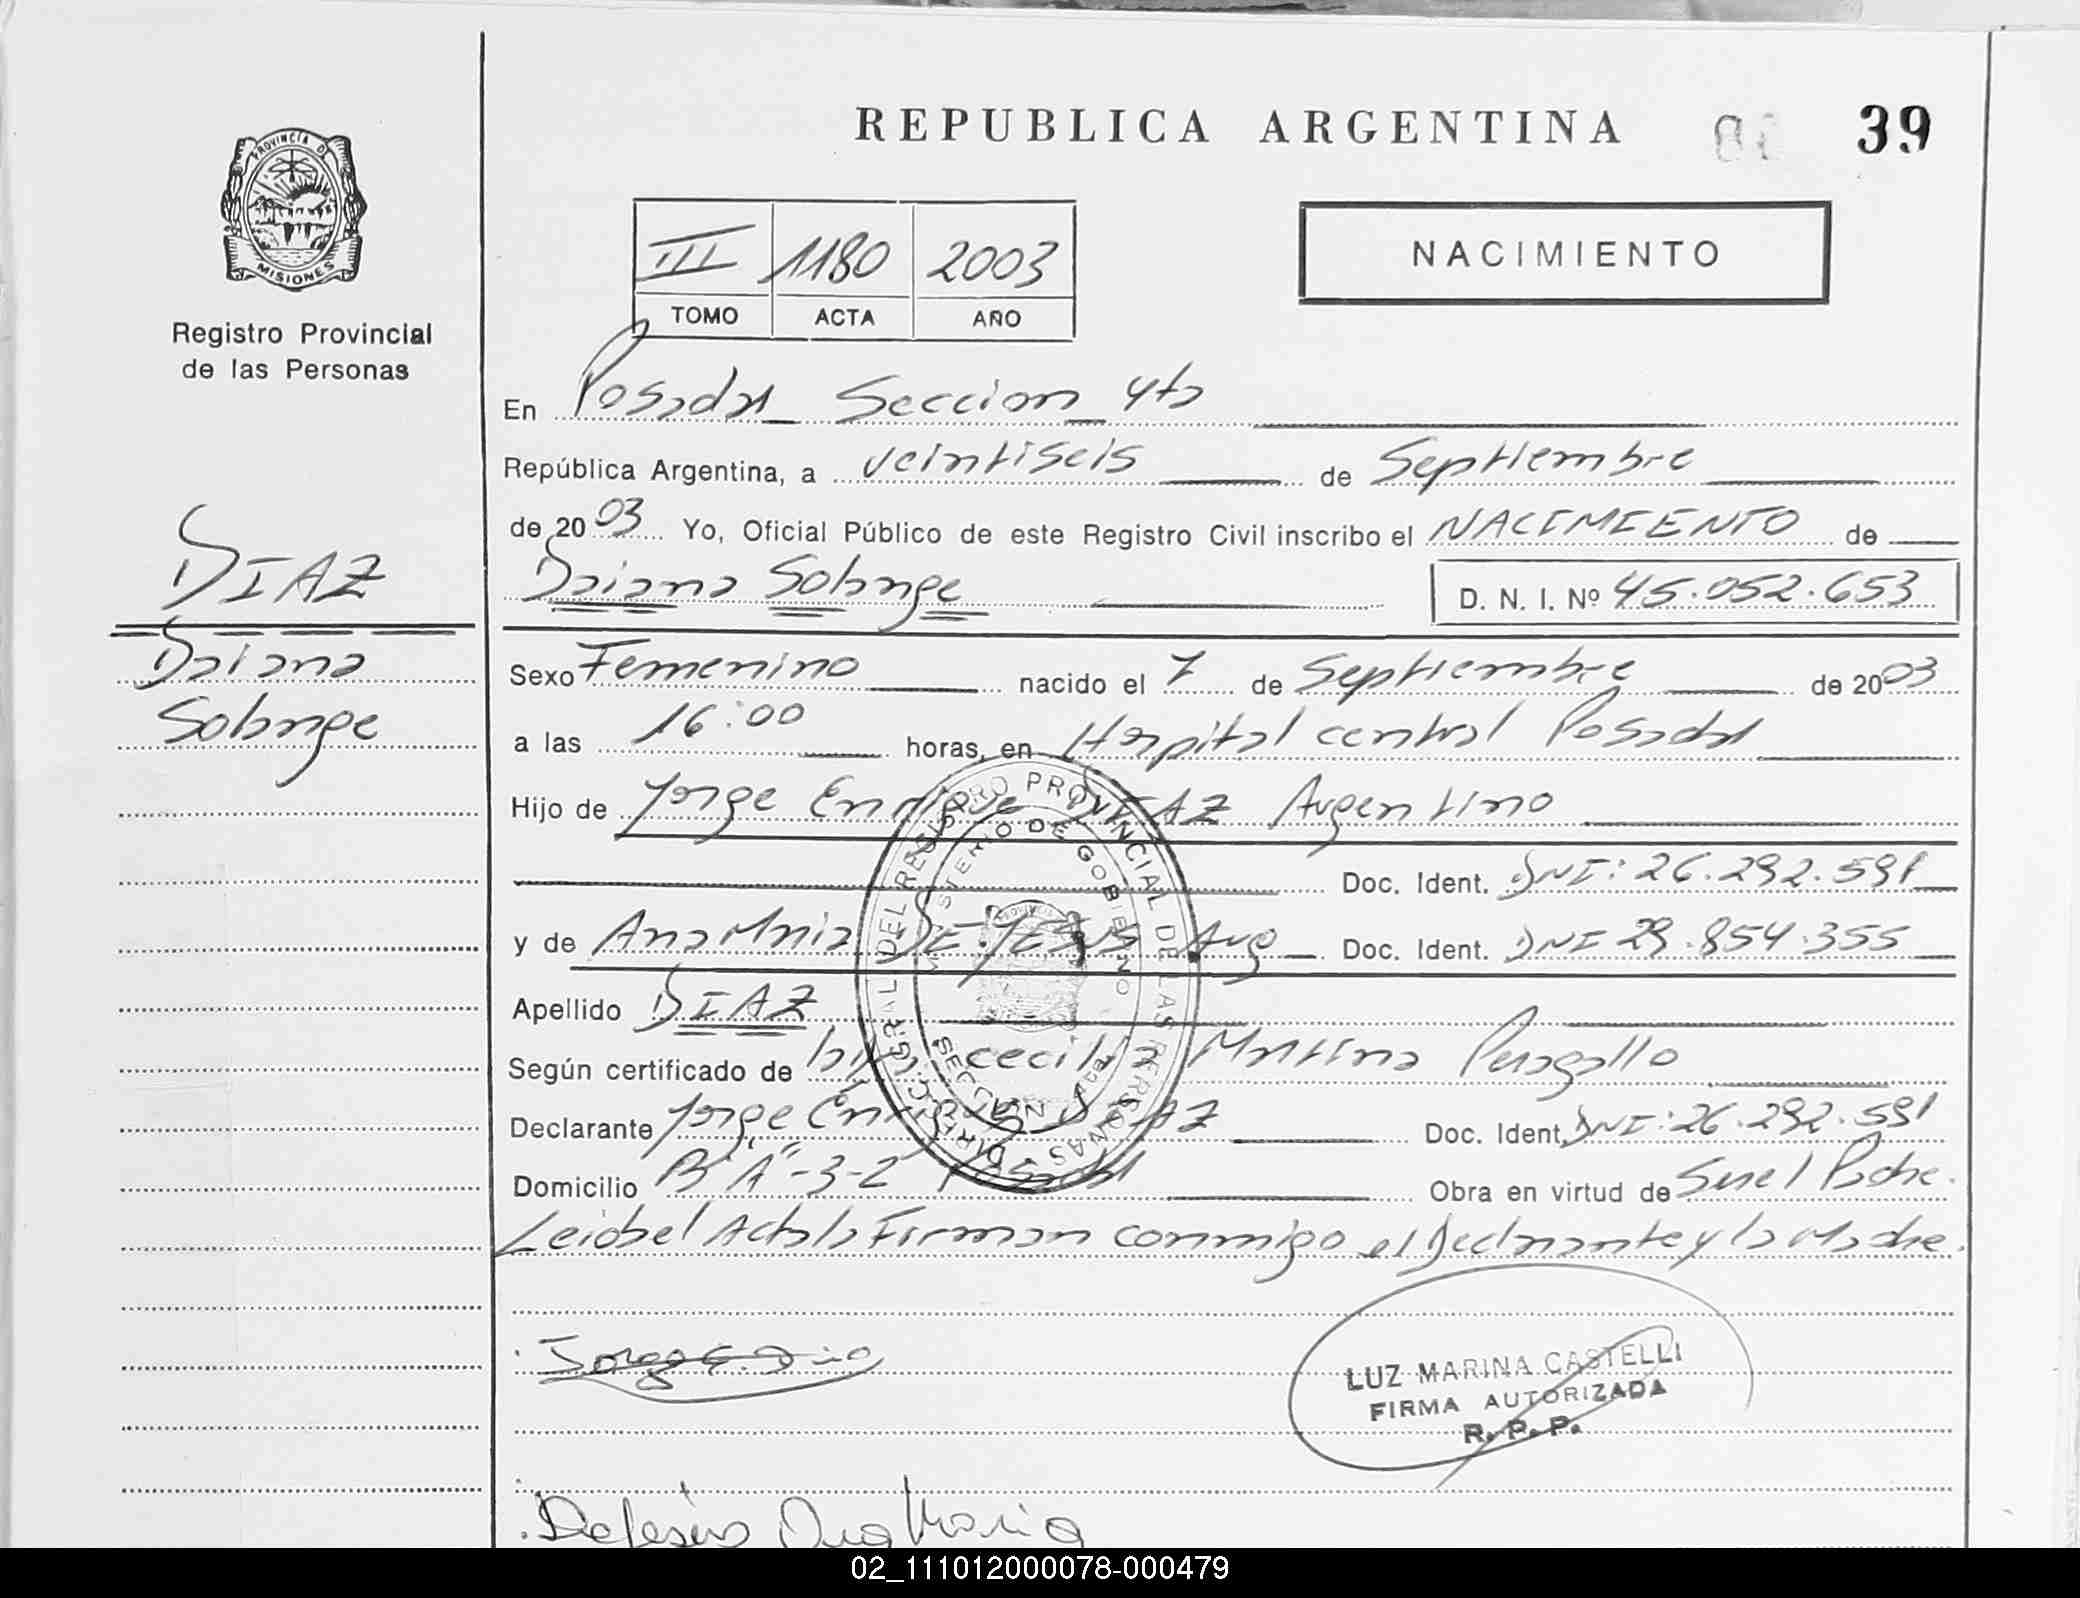 REPUBLICA ARGENTINA 39
PROVINCIA DE
MISIONES
Registro Provincial
de las Personas
III 1180 2003
TOMO ACTA AÑO
NACIMIENTO
En Posadas Seccion 4ta
República Argentina, a veintiseis de Septiembre
de 2003 Yo, Oficial Público de este Registro Civil inscribo el NACIMIENTO de
DIAZ
Daiana Solange
Daiana Solange D. N. I. Nº 45.052.653
Sexo Femenino nacido el 7 de Septiembre de 2003
a las 16:00 horas, en Hospital central Posadas
Hijo de Jorge Enrique DIAZ Argentino
Doc. Ident. DNI: 26.292.591
y de Ana Maria DE JESUS Arg Doc. Ident. DNI 29.854.355
Apellido DIAZ
Según certificado de cecilia Martina Peragallo
Declarante Jorge Enrique DIAZ Doc. Ident. DNI: 26.292.591
Domicilio Bº "A"-3-2 Posadas Obra en virtud de Ser el Padre.
Leida el Acta la Firman conmigo el Declarante y la Madre.
DIRECC. GRAL. DEL REGISTRO PROVINCIAL DE LAS PERSONAS
MINISTERIO DE GOBIERNO
Jorge E. Diaz
LUZ MARINA CASTELLI
FIRMA AUTORIZADA
R. P. P.
De Jesus Ana Maria
02_111012000078-000479